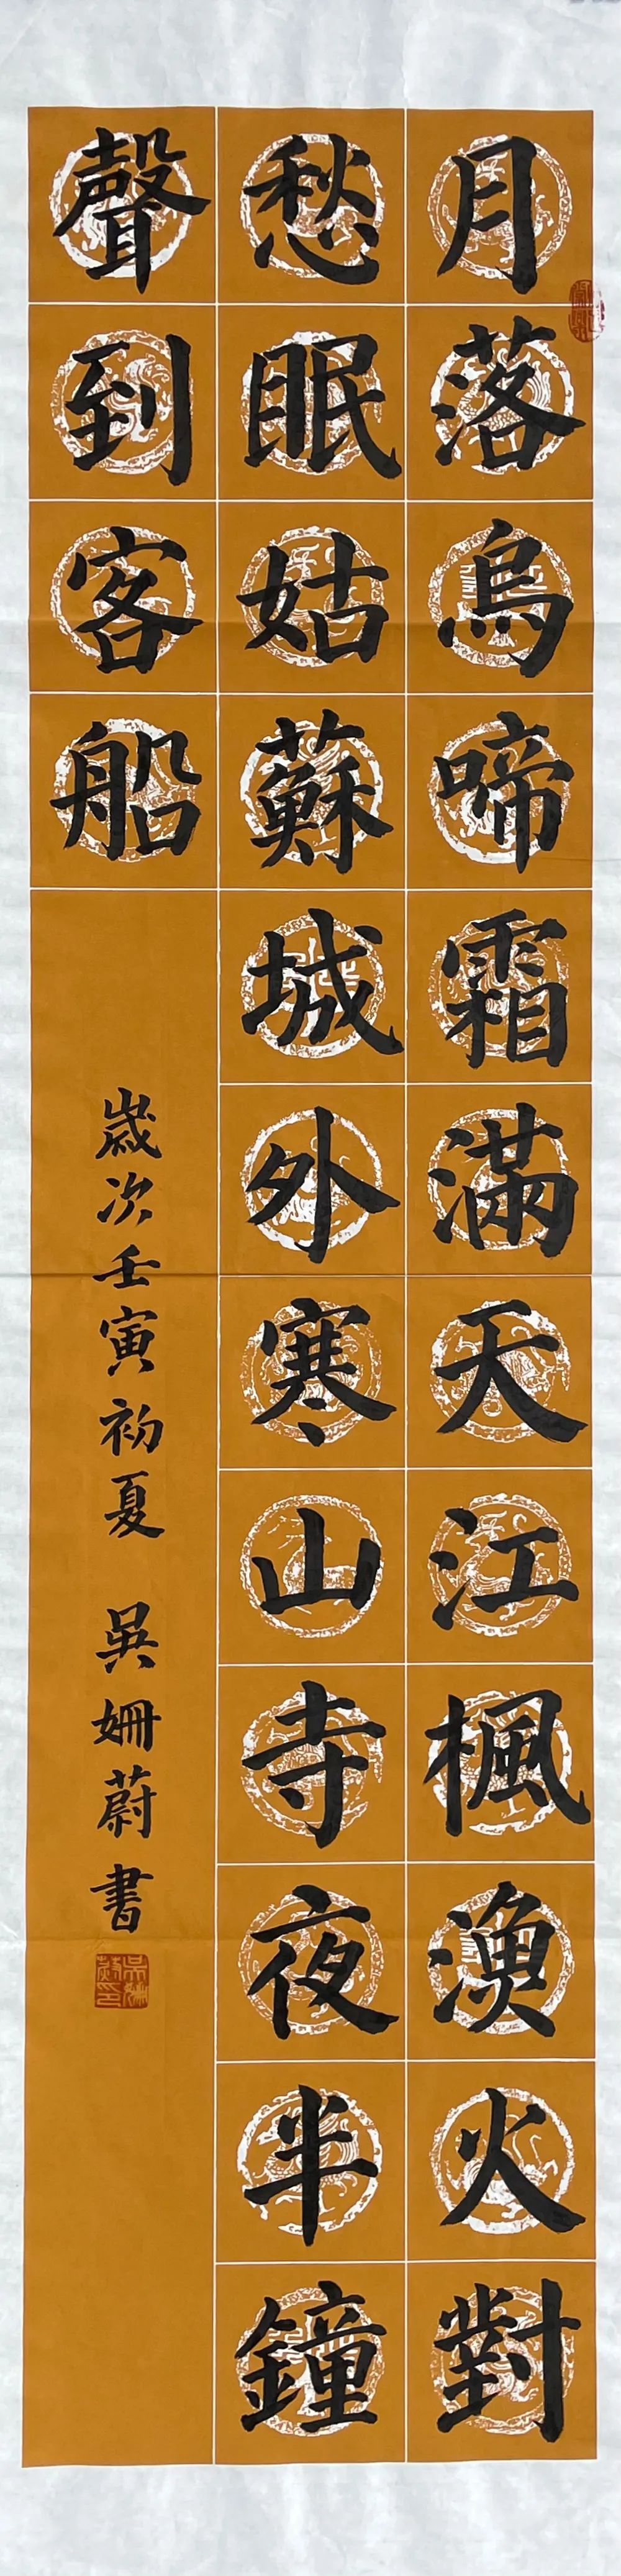 月落烏啼霜滿天江楓漁火對
愁眠姑蘇城外寒山寺夜半鐘
聲到客船
歲次壬寅初夏 吳姍蔚書